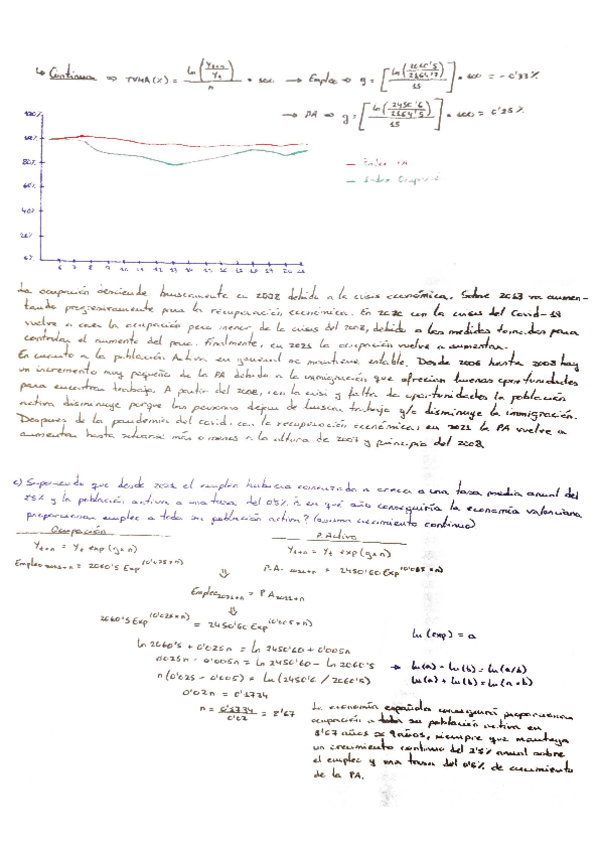 ↳ Continua ⇒ TVMA(X) = ln(Yt+n / Yt) / n · 100 → Empleo ⇒ g = [ln(2060'5 / ) / 15] · 100 = -0'33%
→ PA ⇒ g = [ln(2450'6 / ) / 15] · 100 = 0'25%
120%
100%
80%
60%
40%
20%
0%
6 7 8 9 10 11 12 13 14 15 16 17 18 19 20 21
— Índice PA
— Índice Ocupación
La ocupación desciende bruscamente en 2008 debido a la crisis económica. Sobre 2013 va aumen-
tando progresivamente para la recuperación económica. En 2020 con la crisis del Covid-19
vuelve a caer la ocupación pero menor de la crisis del 2008, debido a las medidas tomadas para
controlar el aumento del paro. Finalmente, en 2021 la ocupación vuelve a aumentar.
En cuanto a la población Activa en general se mantiene estable. Desde 2006 hasta 2008 hay
un incremento muy pequeño de la PA debido a la inmigración que ofrecían buenas oportunidades
para encontrar trabajo. A partir del 2008, con la crisi y falta de oportunidades la población
activa disminuye porque las personas dejan de buscar trabajo y/o disminuye la inmigración.
Después de la pandemia del covid, con la recuperación económica, en 2021 la PA vuelve a
aumentar hasta situarse más o menos a la altura de 2007 y principio del 2008.
c) Suponiendo que desde 2021 el empleo hubiera comenzado a crecer a una tasa media anual del
2'5% y la población activa a una tasa del 0'5%. ¿en qué año conseguiría la economía valenciana
proporcionar empleo a toda su población activa? (asuma crecimiento continuo)
Ocupación
P. Activa
Yt+n = Yt exp(g×n)
Yt+n = Yt exp(g×n)
Empleo 2021+n = 2060'5 Exp (0'025×n)
P.A. 2021+n = 2450'60 Exp (0'005×n)
⇓
Empleo2021+n = PA2021+n
⇓
2060'5 Exp (0'025×n) = 2450'60 Exp (0'005×n)
ln(exp) = a
ln 2060'5 + 0'025n = ln 2450'60 + 0'005n
0'025n - 0'005n = ln 2450'60 - ln 2060'5
→ ln(a) - ln(b) = ln(a/b)
n(0'025 - 0'005) = ln(2450'6 / 2060'5)
ln(a) + ln(b) = ln(a×b)
0'02n = 0'1734
n = 0'1734 / 0'02 = 8'67
La economía española conseguirá proporcionar
ocupación a toda su población activa en
8'67 años ≈ 9 años, siempre que mantenga
un crecimiento continuo del 2'5% anual sobre
el empleo y una tasa del 0'5% de crecimiento
de la PA.